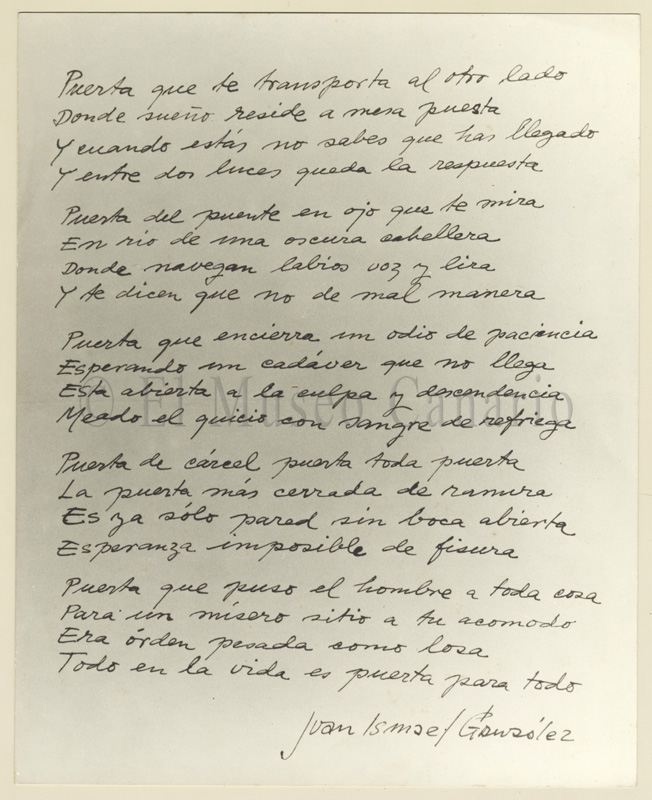 Puerta que te transporta al otro lado
Donde sueño reside a mesa puesta
Y cuando estás no sabes que has llegado
Y entre dos luces queda la respuesta
Puerta del puente en ojo que te mira
En río de una oscura cabellera
Donde navegan labios voz y lira
Y te dicen que no de mal manera
Puerta que encierra un odio de paciencia
Esperando un cadáver que no llega
Esta abierta a la culpa y descendencia
Meado el quicio con sangre de refriega
© El Museo Canario
Puerta de cárcel puerta toda puerta
La puerta más cerrada de ranura
Es ya sólo pared sin boca abierta
Esperanza imposible de fisura
Puerta que puso el hombre a toda cosa
Para un mísero sitio a tu acomodo
Era órden pesada como losa
Todo en la vida es puerta para todo
Juan Ismael González